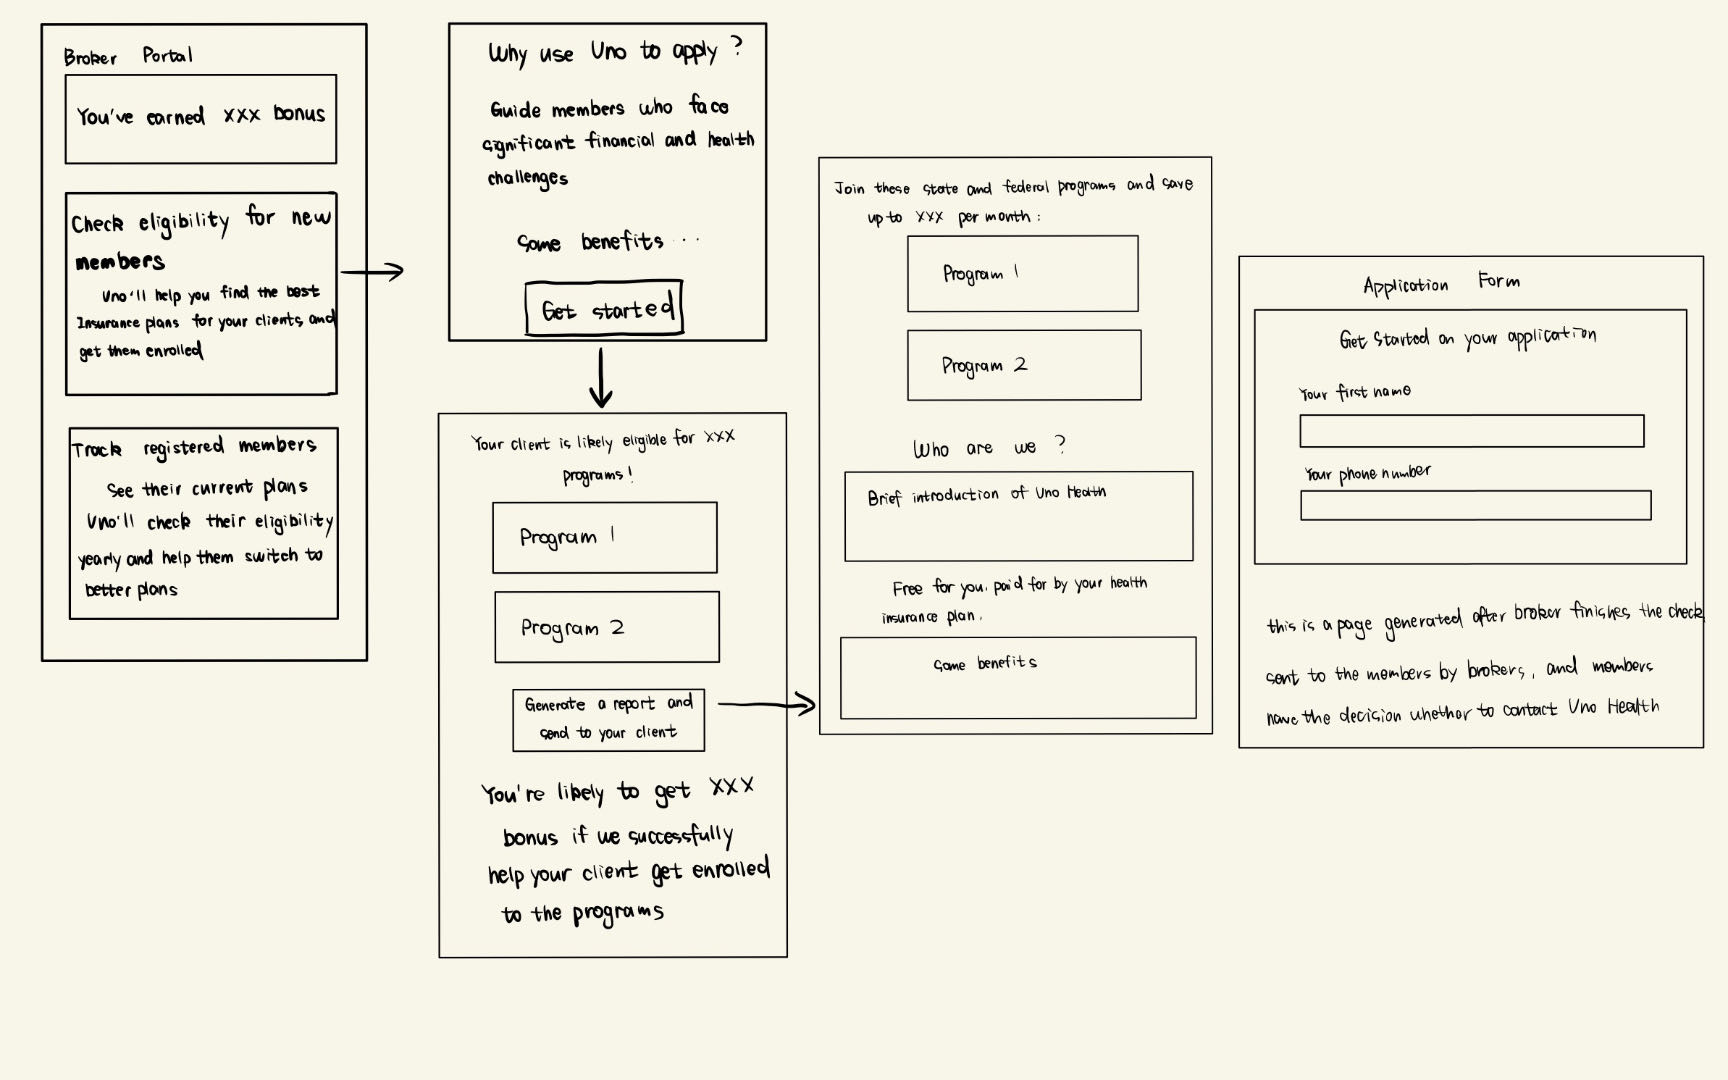 Broker Portal
You've earned XXX bonus
Check eligibility for new
members
Uno'll help you find the best
Insurance plans for your clients, and
get them enrolled
Track registered members
See their current plans
Uno'll check their eligibility
yearly and help them switch to
better plans
Why use Uno to apply ?
Guide members who face
significant financial and health
challenges
Some benefits ...
Get started
Your client is likely eligible for XXX
programs!
Program 1
Program 2
Generate a report and
send to your client
You're likely to get XXX
bonus if we successfully
help your client get enrolled
to the programs
Join these state and federal programs and save
up to XXX per month :
Program 1
Program 2
Who are we ?
Brief introduction of Uno Health
Free for you, paid for by your health
insurance plan.
Some benefits
Application Form
Get Started on your application
Your first name
Your phone number
this is a page generated after broker finishes the check
sent to the members by brokers, and members
have the decision whether to contact Uno Health